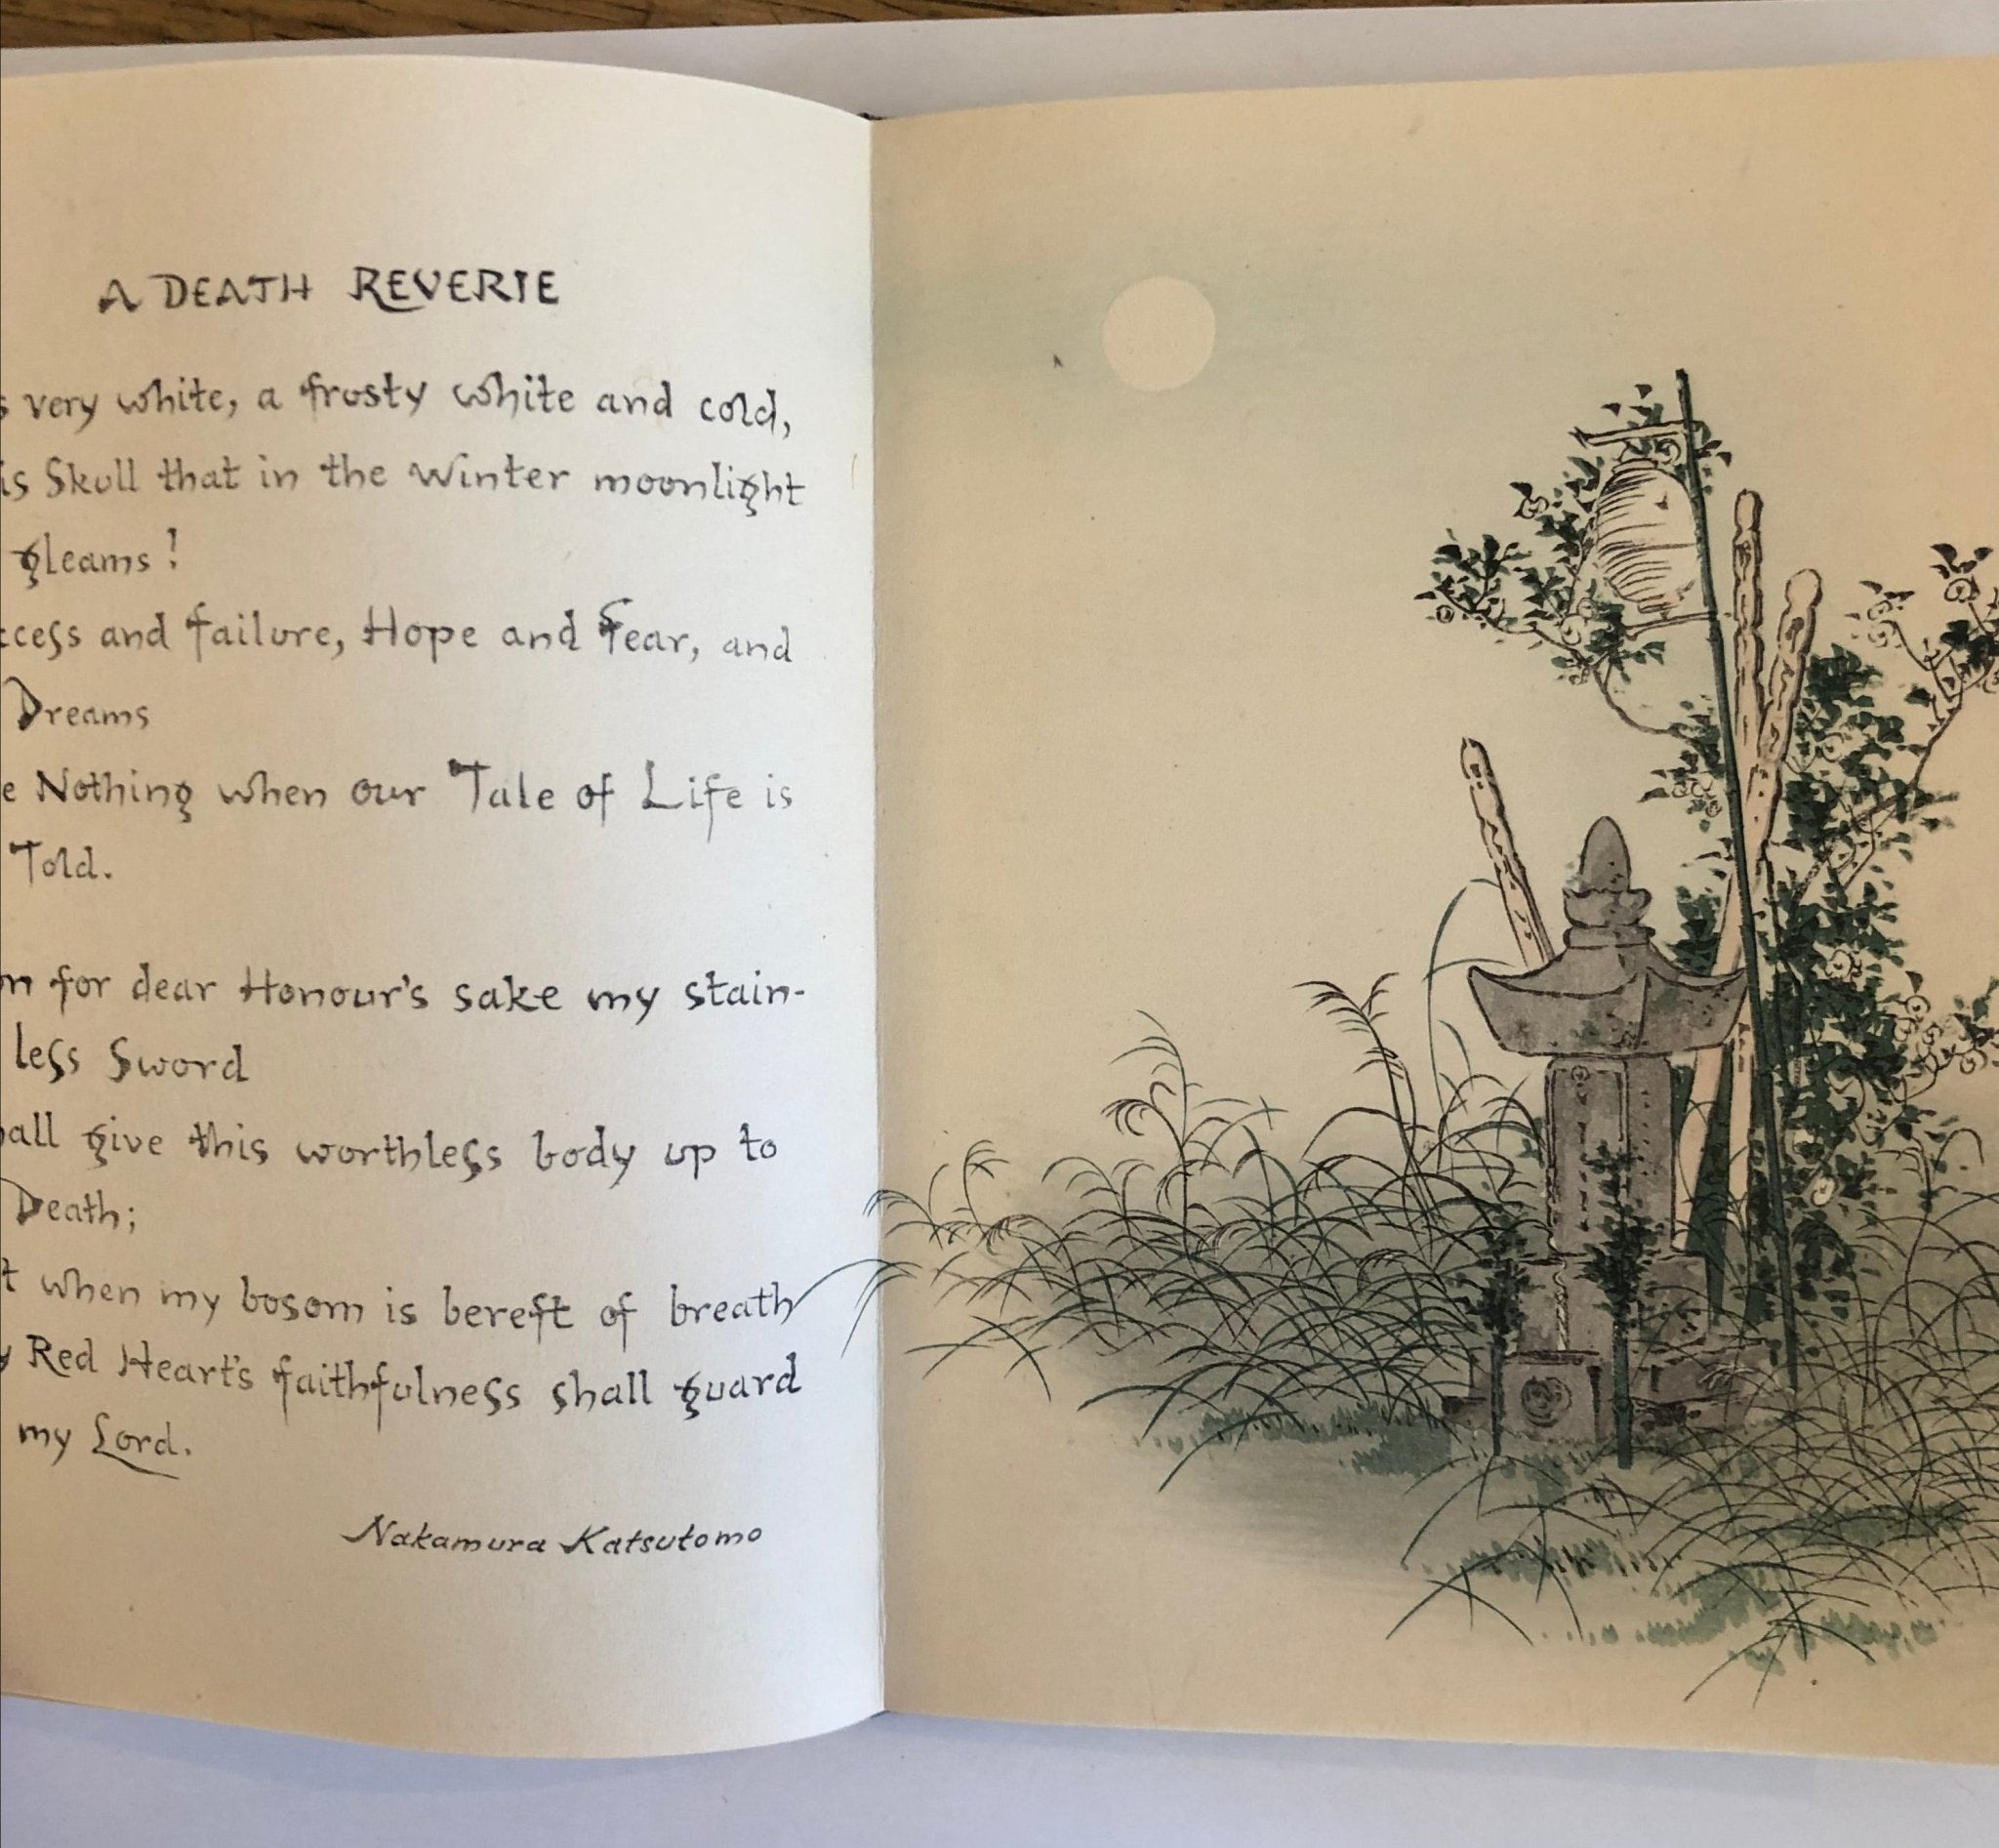 A DEATH REVERIE
very white, a frosty white and cold,
Skull that in the Winter moonlight
gleams!
and failure, Hope and Fear, and
Dreams
Nothing when our Tale of Life is
Told.
for dear Honour's sake my stain-
less Sword
give this worthless body up to
Death;
when my bosom is bereft of breath
Red Heart's faithfulness shall guard
my Lord.
Nakamura Katsutomo